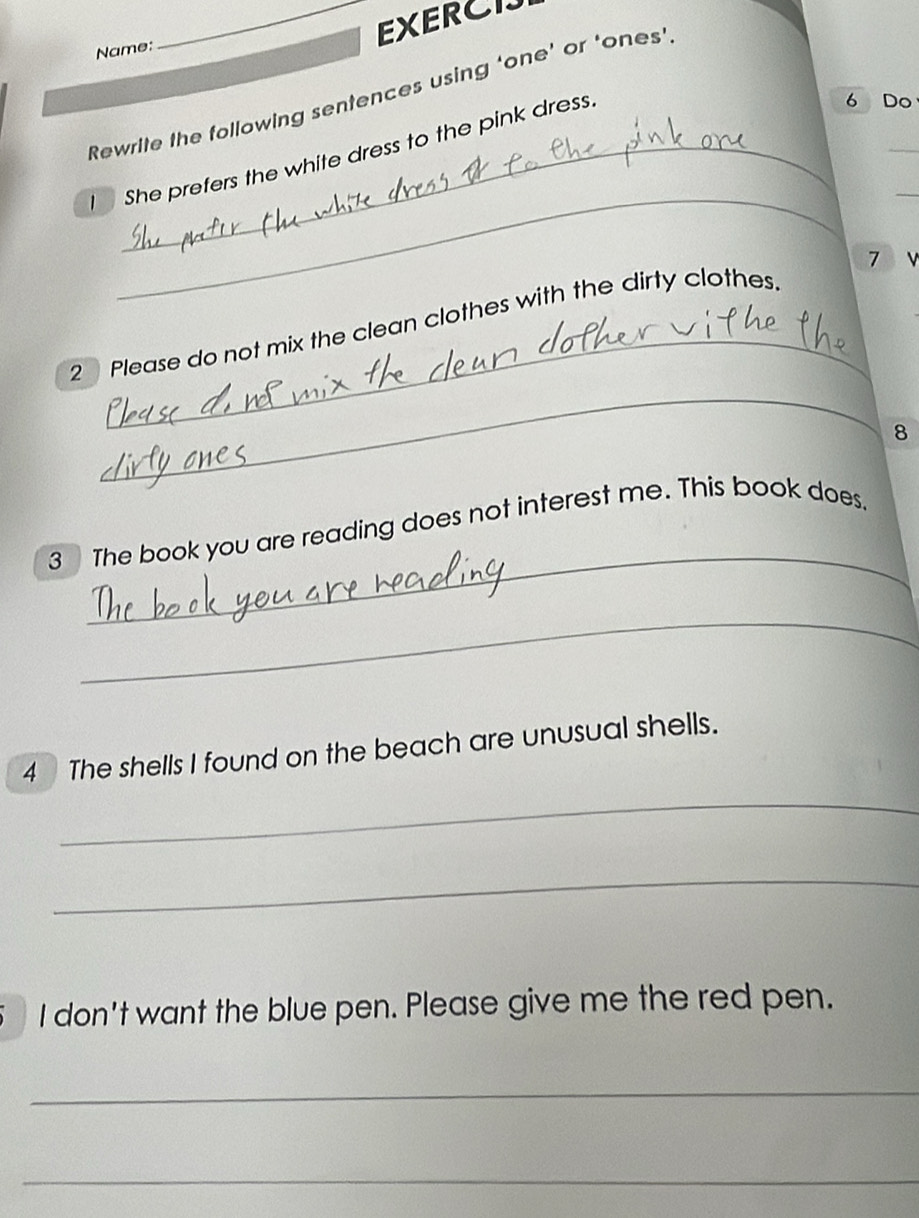 EXERCIS
Name:
Rewrite the following sentences using 'one' or 'ones'.
1 She prefers the white dress to the pink dress.
She prefer the white dress to the pink one
2 Please do not mix the clean clothes with the dirty clothes.
Please do not mix the clean clother withe the
dirty ones
3 The book you are reading does not interest me. This book does.
The book you are reading
4 The shells I found on the beach are unusual shells.
5 I don't want the blue pen. Please give me the red pen.
6 Do
7
8